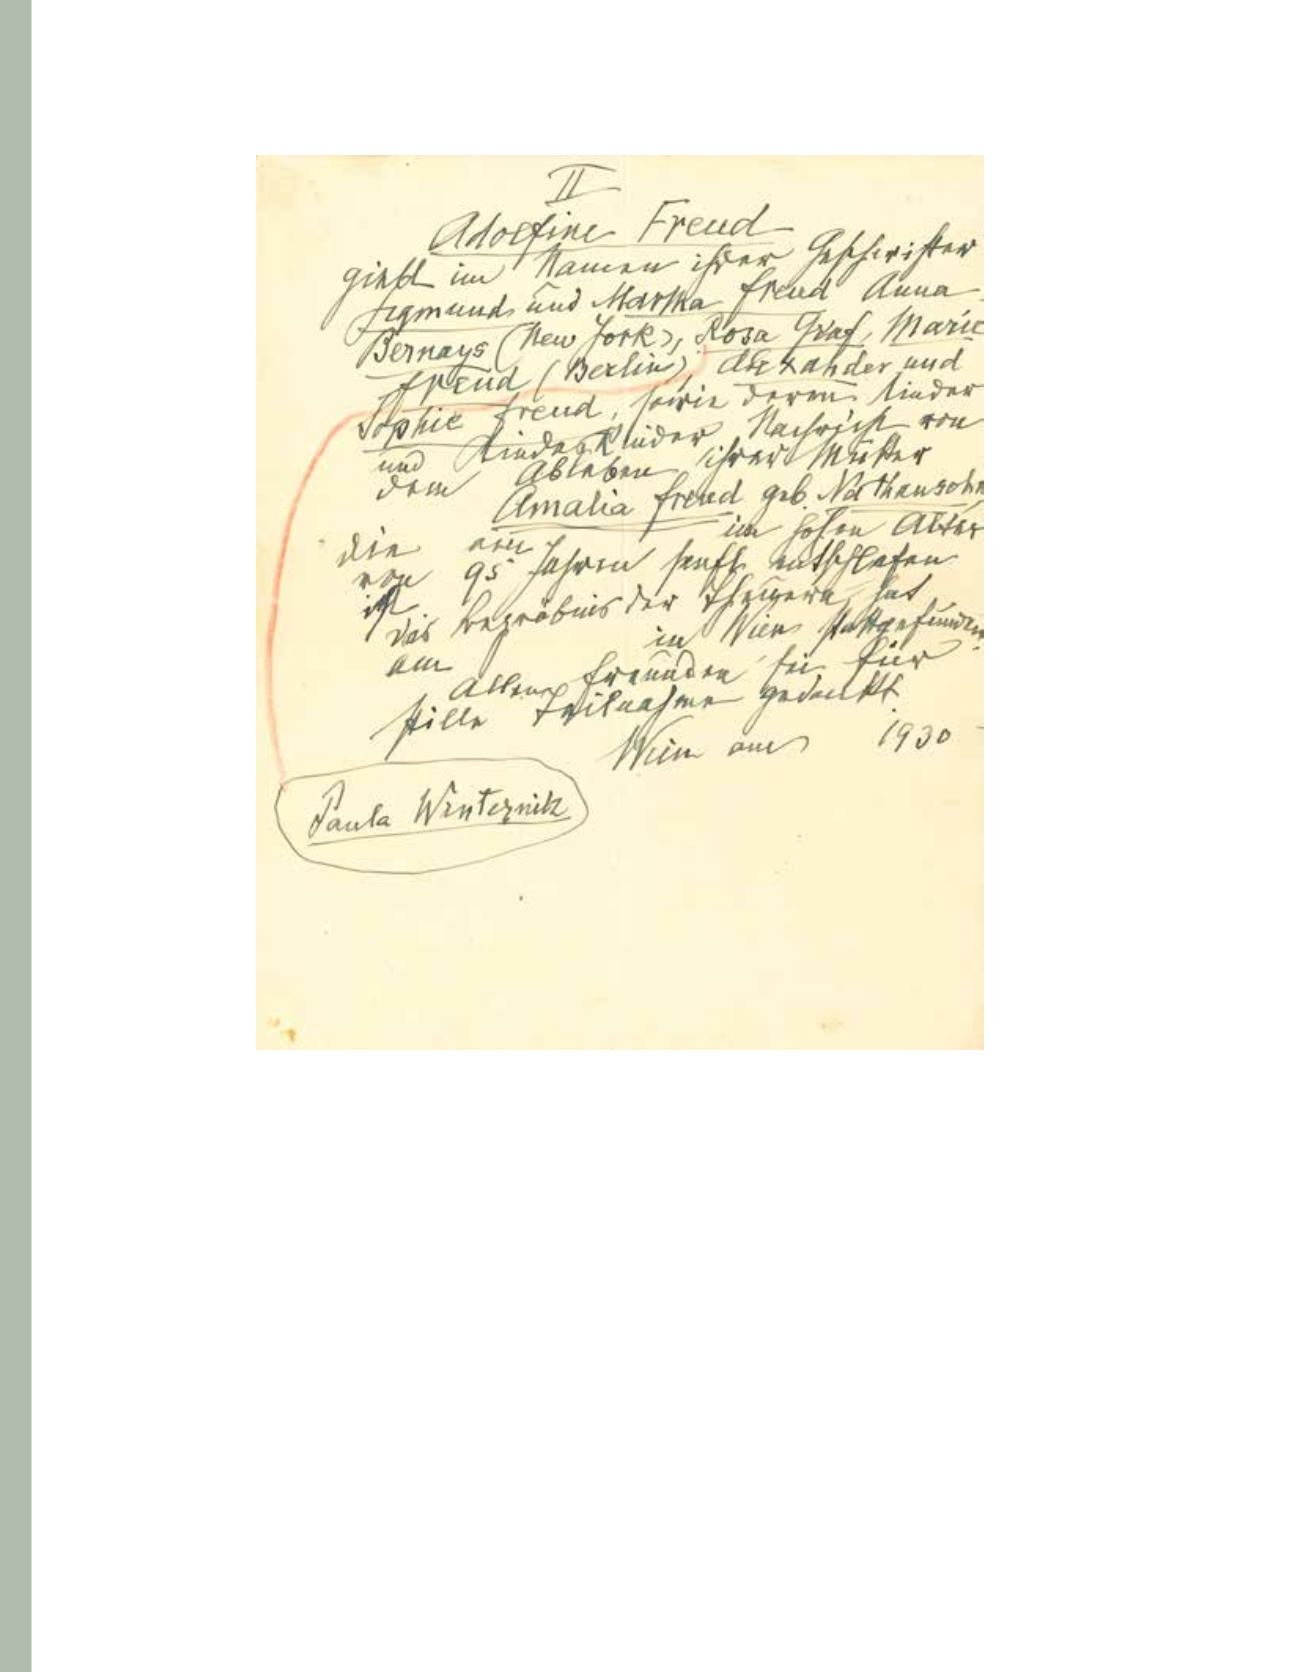 II
Adolfine Freud
giebt im Namen ihrer Geschwister
Sigmund und Martha Freud Anna
Bernays (New York), Rosa Graf, Marie
Freud (Berlin) Alexander und
Sophie Freud, sowie deren Kinder
und Kindeskinder Nachricht von
dem Ableben ihrer Mutter
Amalia Freud geb. Nathansohn
die am im hohen Alter
von 95 Jahren sanft entschlafen
ist
das Begräbnis der Theuern hat
am in Wien stattgefunden.
Allen Freunden sei für
stille Teilnahme gedankt.
Wien am 1930
Paula Winternitz